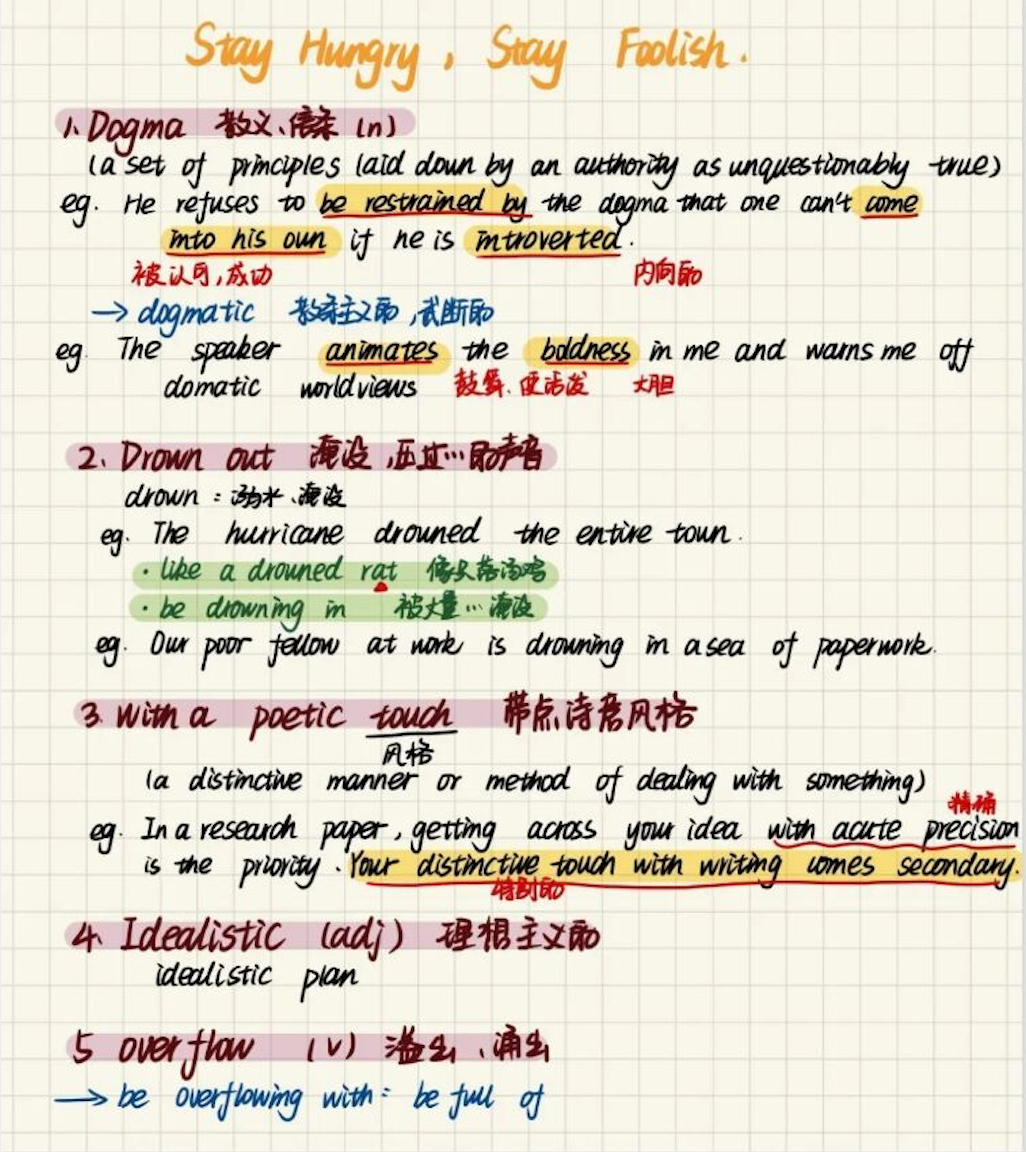 Stay Hungry, Stay Foolish.
1. Dogma 教义、信条 (n)
(a set of principles laid down by an authority as unquestionably true)
eg. He refuses to be restrained by the dogma that one can't come
into his own if he is introverted.
被认可,成功 内向的
→ dogmatic 教条主义的,武断的
eg. The speaker animates the boldness in me and warns me off
domatic worldviews 鼓舞.使活发 大胆
2. Drown out 淹没,压过…的声音
drown : 溺水、淹没
eg. The hurricane drowned the entire town.
· like a drowned rat 像只落汤鸡
· be drowning in 被大量…淹没
eg. Our poor fellow at work is drowning in a sea of paperwork.
3. with a poetic touch 带点诗意风格
风格
(a distinctive manner or method of dealing with something)
精确
eg. In a research paper, getting across your idea with acute precision
is the priority. Your distinctive touch with writing comes secondary.
特别的
4. Idealistic (adj) 理想主义的
idealistic plan
5 overflow (v) 溢出、涌出
→ be overflowing with: be full of